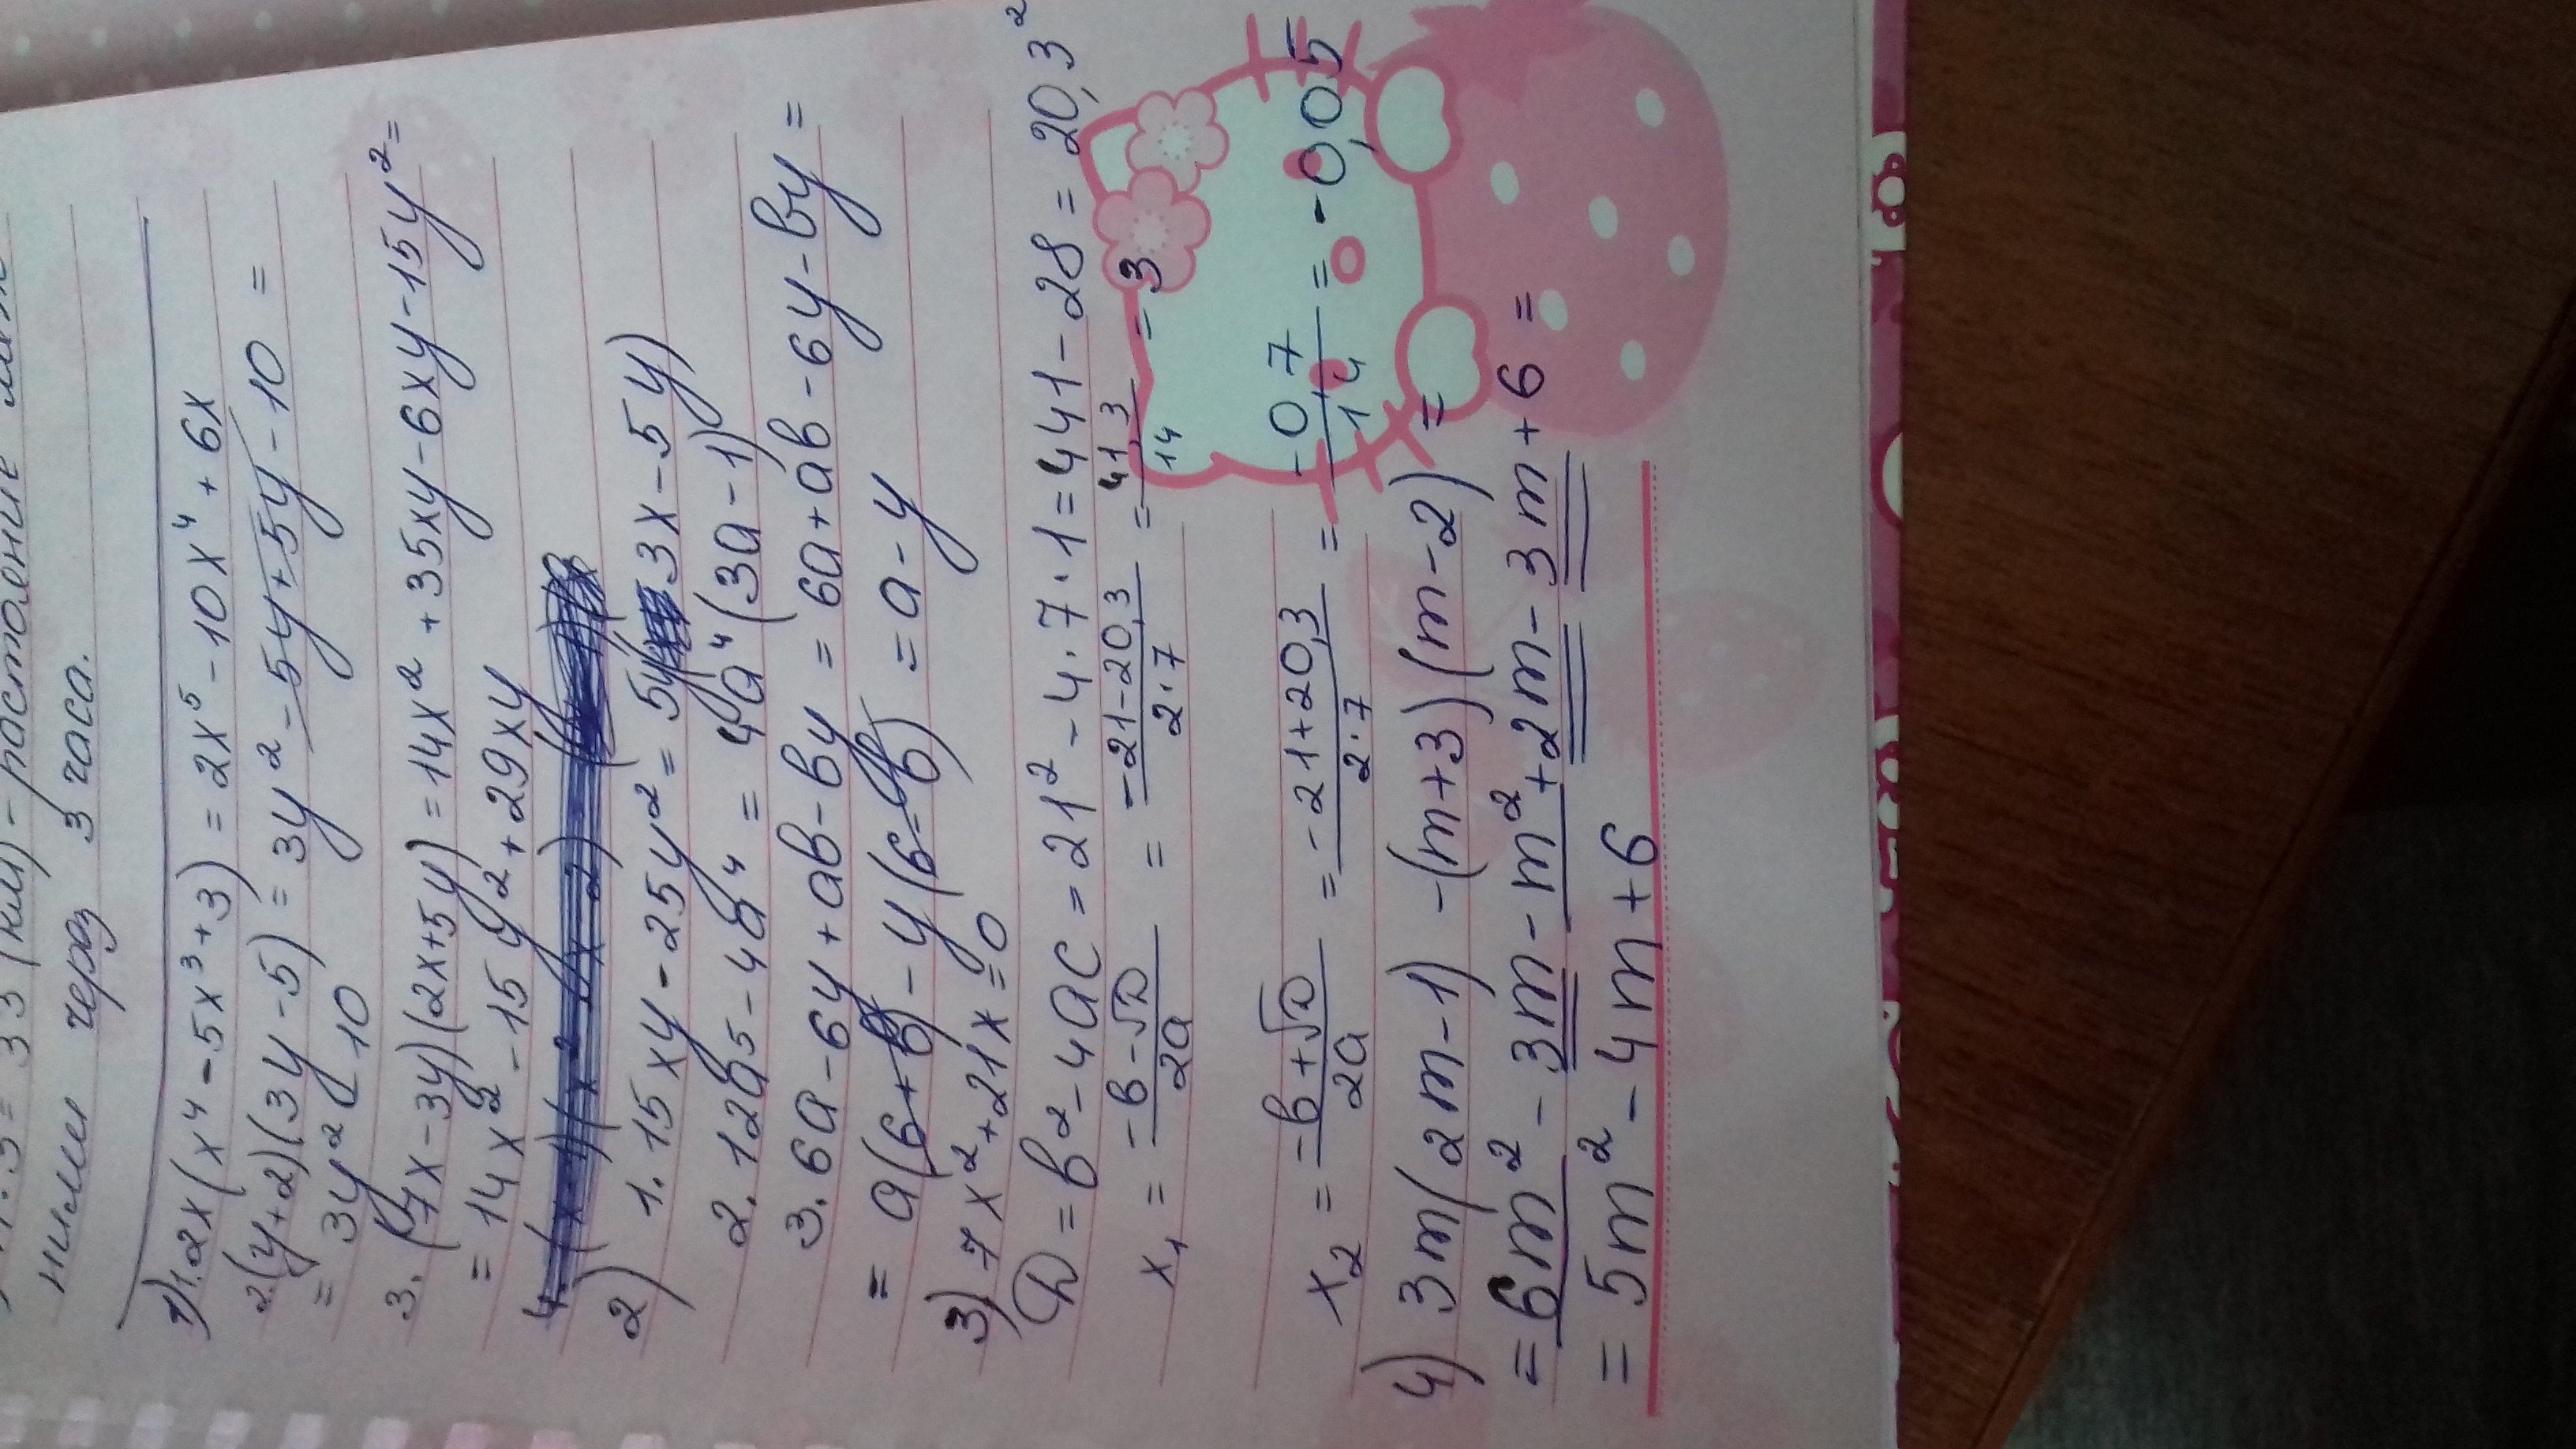 = 33 (км) - растояние
ними через 3 часа.
1) 1. 2x(x⁴ - 5x³ + 3) = 2x⁵ - 10x⁴ + 6x
2. (y+2)(3y-5) = 3y² - 5y + 5y - 10 =
= 3y² - 10
3. (7x - 3y)(2x+5y) = 14x² + 35xy - 6xy - 15y² =
= 14x² - 15y² + 29xy
2) 1. 15xy - 25y² = 5y(3x - 5y)
2. 12a⁵ - 4a⁴ = 4a⁴(3a - 1)
3. 6a - 6y + ab - by = 6a + ab - 6y - by =
= a(6+b) - y(6-b) = a - y
3) 7x² + 21x = 0
D = b² - 4ac = 21² - 4 · 7 · 1 = 441 - 28 = 20,3²
x₁ = -b-√D/2a = -21-20,3/2·7 = 41,3/14 = 3
x₂ = -b+√D/2a = -21+20,3/2·7 = -0,7/14 = -0,05
4) 3m(2m-1) - (m+3)(m-2) =
= 6m² - 3m - m² + 2m - 3m + 6 =
= 5m² - 4m + 6